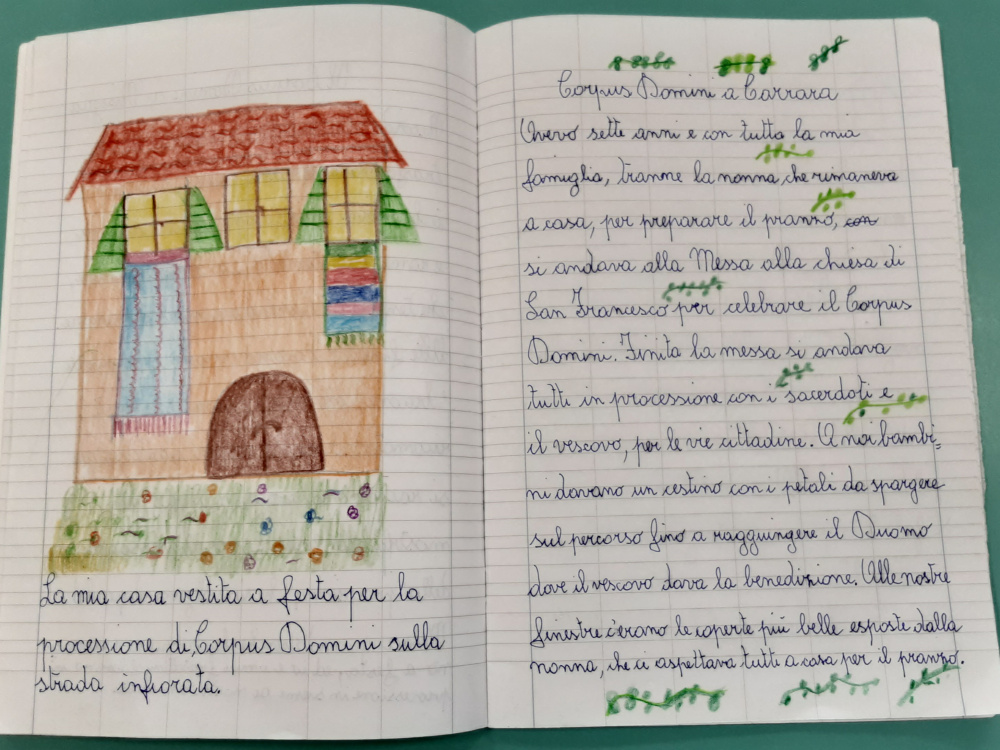 La mia casa vestita a festa per la
processione di Corpus Domini sulla
strada infiorata.
Corpus Domini a Carrara
Avevo sette anni e con tutta la mia
famiglia, tranne la nonna, che rimaneva
a casa, per preparare il pranzo, con
si andava alla Messa alla chiesa di
San Francesco per celebrare il Corpus
Domini. Finita la messa si andava
tutti in processione con i sacerdoti e
il vescovo, per le vie cittadine. A noi bambi=
ni davano un cestino con i petali da spargere
sul percorso fino a raggiungere il Duomo
dove il vescovo dava la benedizione. Alle nostre
finestre c'erano le coperte più belle esposte dalla
nonna, che ci aspettava tutti a casa per il pranzo.